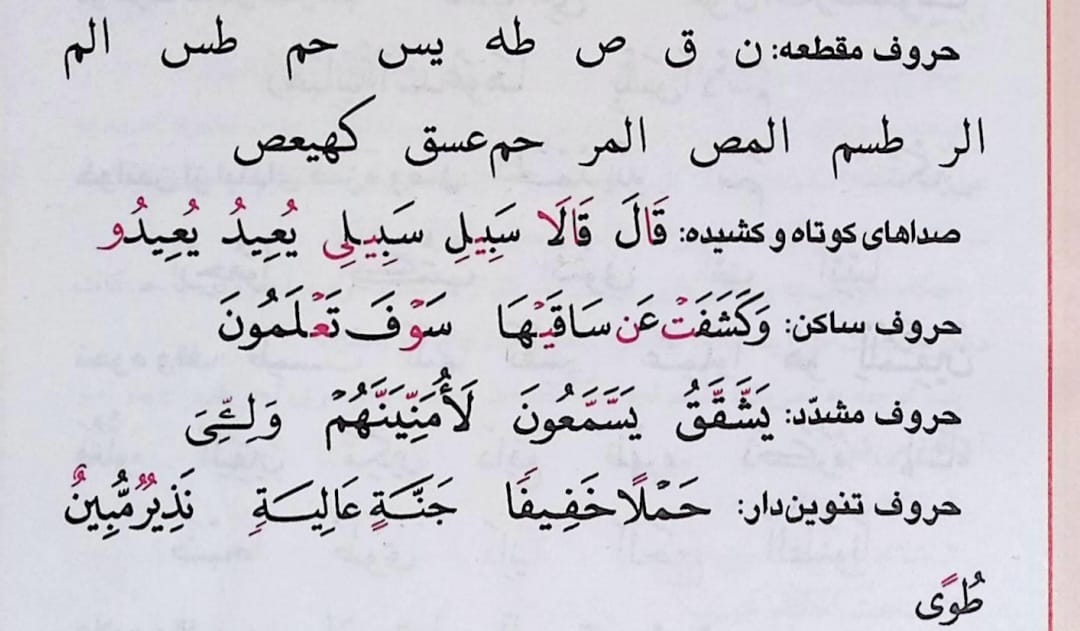 حروف مقطعه: ن ق ص طه یس حم طس الم
الر طسم المص المر حم‌عسق كهيعص
صداهای کوتاه و کشیده: قَالَ قَالَا سَبِيلِ سَبِيلِی يُعِيدُ يُعِيدُو
حروف ساکن: وَكَشَفَتْ عَن سَاقَيْهَا سَوْفَ تَعْلَمُونَ
حروف مشدّد: يَشَّقَّقُ يَسَّمَّعُونَ لَأُمَنِّيَنَّهُمْ وَلِـِّۧىَ
حروف تنوین‌دار: حَمْلًا خَفِيفًا جَنَّةٍ عَالِيَةٍ نَذِيرٌ مُّبِينٌ
طُوًى